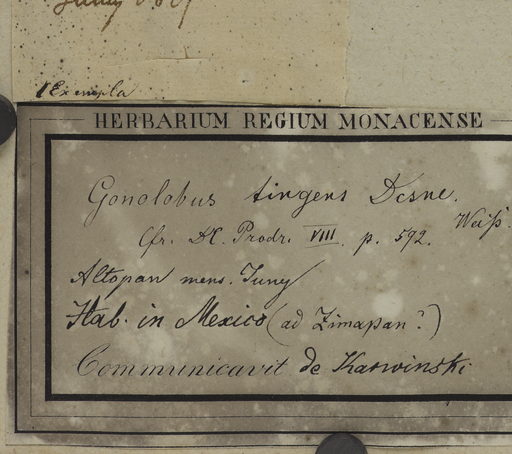 1 Exempla
HERBARIUM REGIUM MONACENSE
Gonolobus tingens Dcsne.
Weiß.
Cfr. DC. Prodr. VIII. p. 592.
Altopan mens. Juny
Hab. in Mexico (ad Zimapan?)
Communicavit de Karwinski